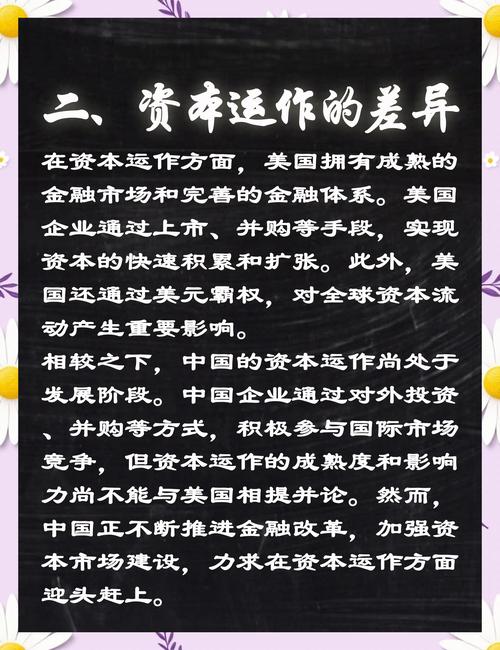 二、资本运作的差异
在资本运作方面，美国拥有成熟的
金融市场和完善的金融体系。美国
企业通过上市、并购等手段，实现
资本的快速积累和扩张。此外，美
国还通过美元霸权，对全球资本流
动产生重要影响。
相较之下，中国的资本运作尚处于
发展阶段。中国企业通过对外投资
、并购等方式，积极参与国际市场
竞争，但资本运作的成熟度和影响
力尚不能与美国相提并论。然而，
中国正不断推进金融改革，加强资
本市场建设，力求在资本运作方面
迎头赶上。